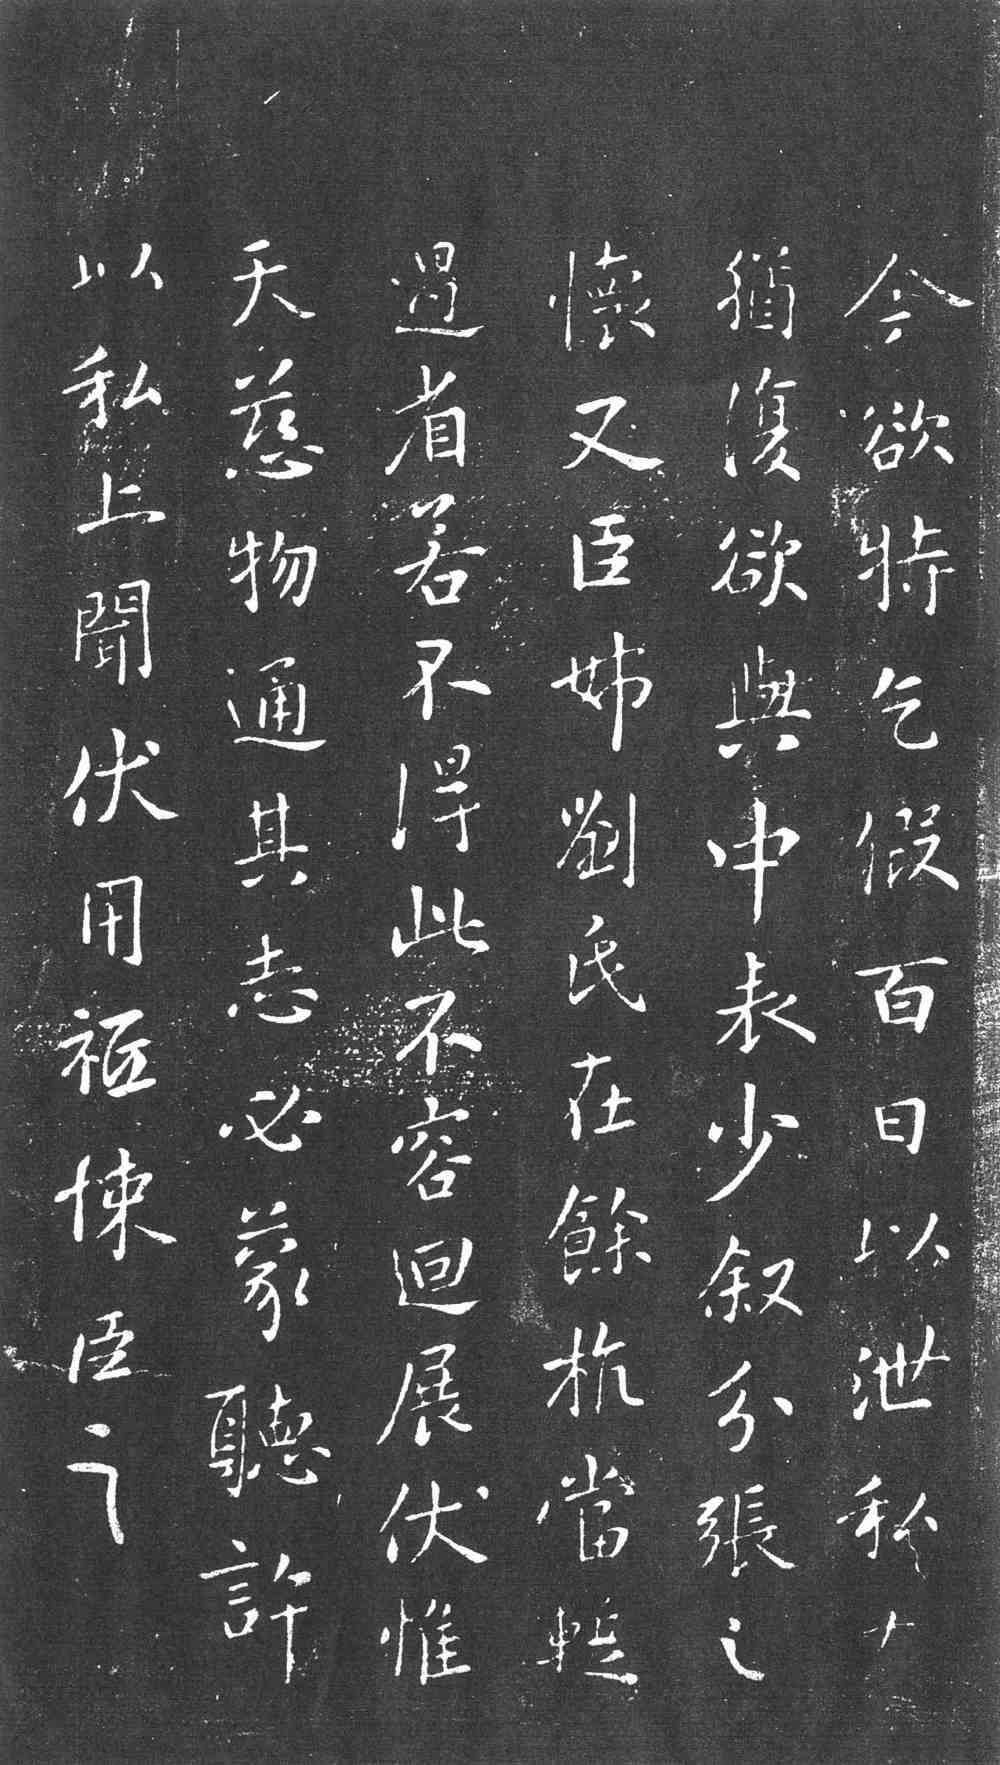 今欲特乞假百日以泄私心
猶復欲與中表少叙分張之
懷又臣姊劉氏在餘杭當蹔
過省若不得此不容迴展伏惟
天慈物通其志必蒙聽許
以私上聞伏用祗悚臣之